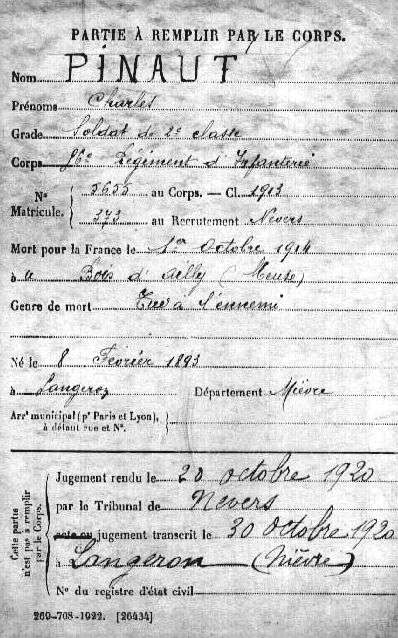 PARTIE À REMPLIR PAR LE CORPS.
Nom PINAUT
Prénoms Charles
Grade Soldat de 2e classe
Corps Régiment d'Infanterie
N° Matricule. 5655 au Corps. — Cl. 1913
373 au Recrutement Nevers
Mort pour la France le 1er Octobre 1914
à u Bois d'Ailly (Meuse)
Genre de mort Tué à l'ennemi
Né le 8 Février 1893
à Langeron Département Nièvre
Arrt municipal (pr Paris et Lyon),
à défaut rue et N°.
Cette partie
n'est pas à remplir
par le Corps.
Jugement rendu le 20 octobre 1920
par le Tribunal de Nevers
acte ou jugement transcrit le 30 Octobre 1920
à Langeron (Nièvre)
N° du registre d'état civil
269-708-1922. [26434]